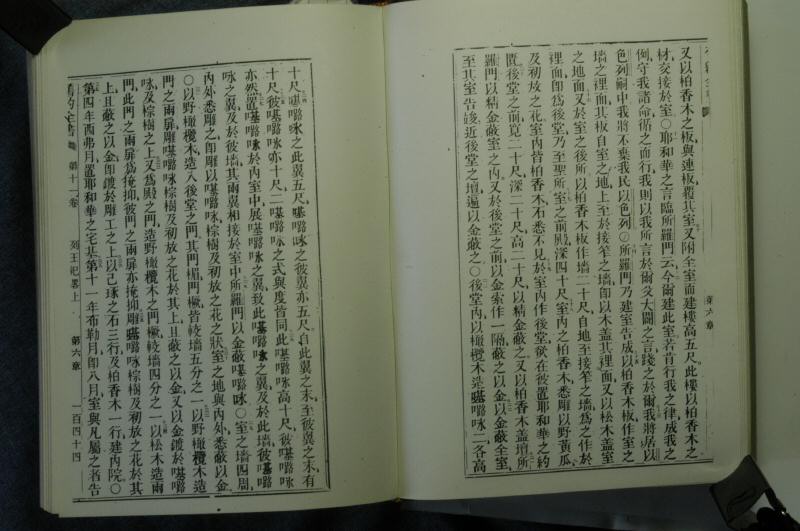 又以柏香木之板與連板覆其室又附全室而建樓高五尺此樓以柏香木之
材交接於室○耶和華之言臨所羅門云今爾建此室若肯行我之律成我之
例守我諸命循之而行我則以我所言於爾父大闢之言踐之於爾我將居以
色列嗣中我將不棄我民以色列○所羅門乃建室告成以柏香木板作室之
墻之裡面其板自室之地上至於接笮之墻即以木盖其裡面又以松木盖室
之地面又於室之後所以柏香木板作墻二十尺自地至接笮之墻爲之作於
裡面即爲後堂乃至聖所室之前殿深四十尺室內之柏香木悉雕以野黃瓜
及初放之花室內皆柏香木石悉不見於室內作後堂欲在彼置耶和華之約
匱後堂之前寬二十尺深二十尺高二十尺以精金蔽之又以柏香木盖壇所
羅門以精金蔽室之內又於後堂之前以金索作一隔蔽之以金以金蔽全室
至其室告竣近後堂之壇遍以金蔽之○後堂內以橄欖木造𠼻𡀔咏二各高
十尺𠼻𡀔咏之此翼五尺𠼻𡀔咏之彼翼亦五尺自此翼之末至彼翼之末有
十尺彼𠼻𡀔咏亦十尺二𠼻𡀔咏之式與度皆同此𠼻𡀔咏高十尺彼𠼻𡀔咏
亦然置𠼻𡀔咏於內室中展𠼻𡀔咏之翼致此𠼻𡀔咏之翼及於此墻彼𠼻𡀔
咏之翼及於彼墻其兩翼相接於室中所羅門以金蔽𠼻𡀔咏○室之墻四周
內外悉雕之即雕以𠼻𡀔咏棕樹及初放之花之狀室之地與內外悉蔽以金
○以野橄欖木造入後堂之門其門楣門橛皆較墻五分之一以野橄欖木造
門之兩扉雕𠼻𡀔咏棕樹及初放之花於其上且蔽之以金又以金鍍於𠼻𡀔
咏及棕樹之上又爲殿之門造野橄欖木之門橛較墻四分之一以松木造兩
門此門之兩扉爲掩抑彼門之兩扉亦掩抑雕𠼻𡀔咏棕樹及初放之花於其
上且蔽之以金即鍍於雕工之上以己琢之石三行及柏香木一行建內院○
第四年西弗月置耶和華之宅基第十一年布勒月即八月室與凡屬之者告
第六章
舊約全書 第十一卷 列王紀畧上 第六章 一百四十四